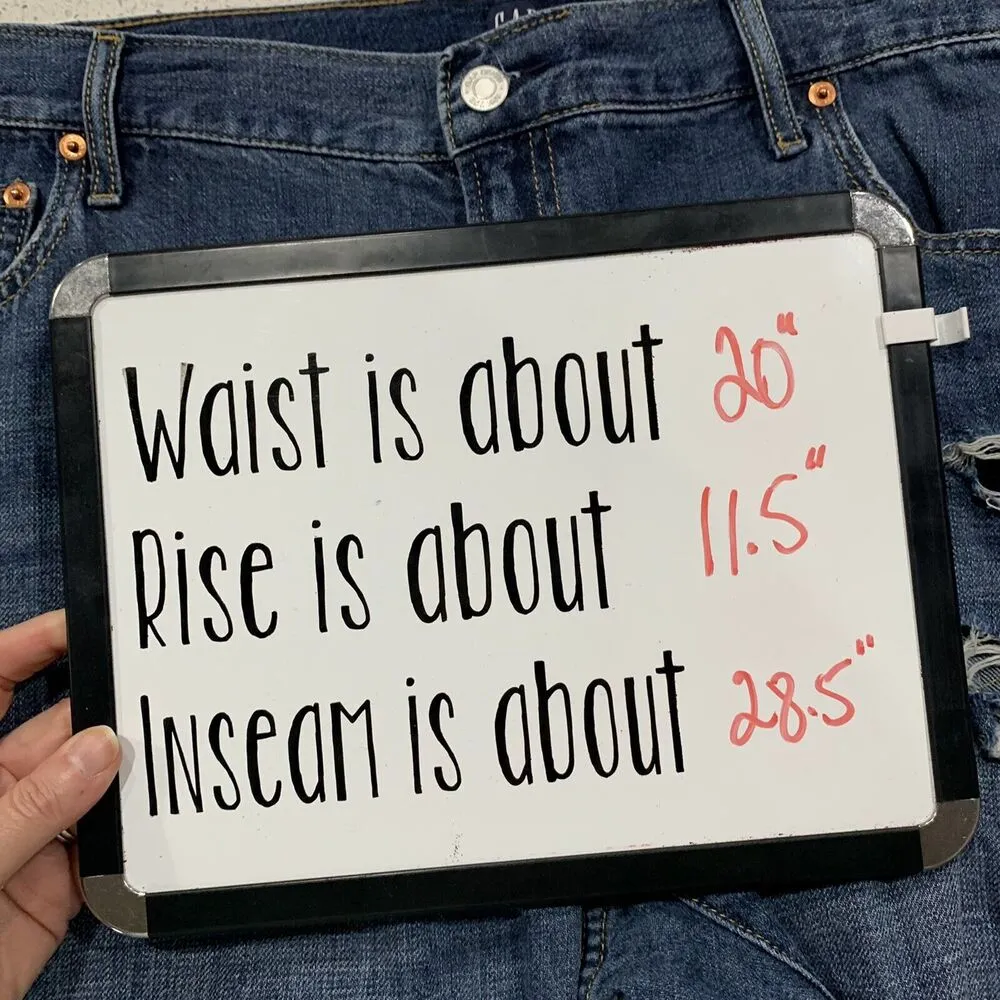 Waist is about 20"
Rise is about 11.5"
Inseam is about 28.5"